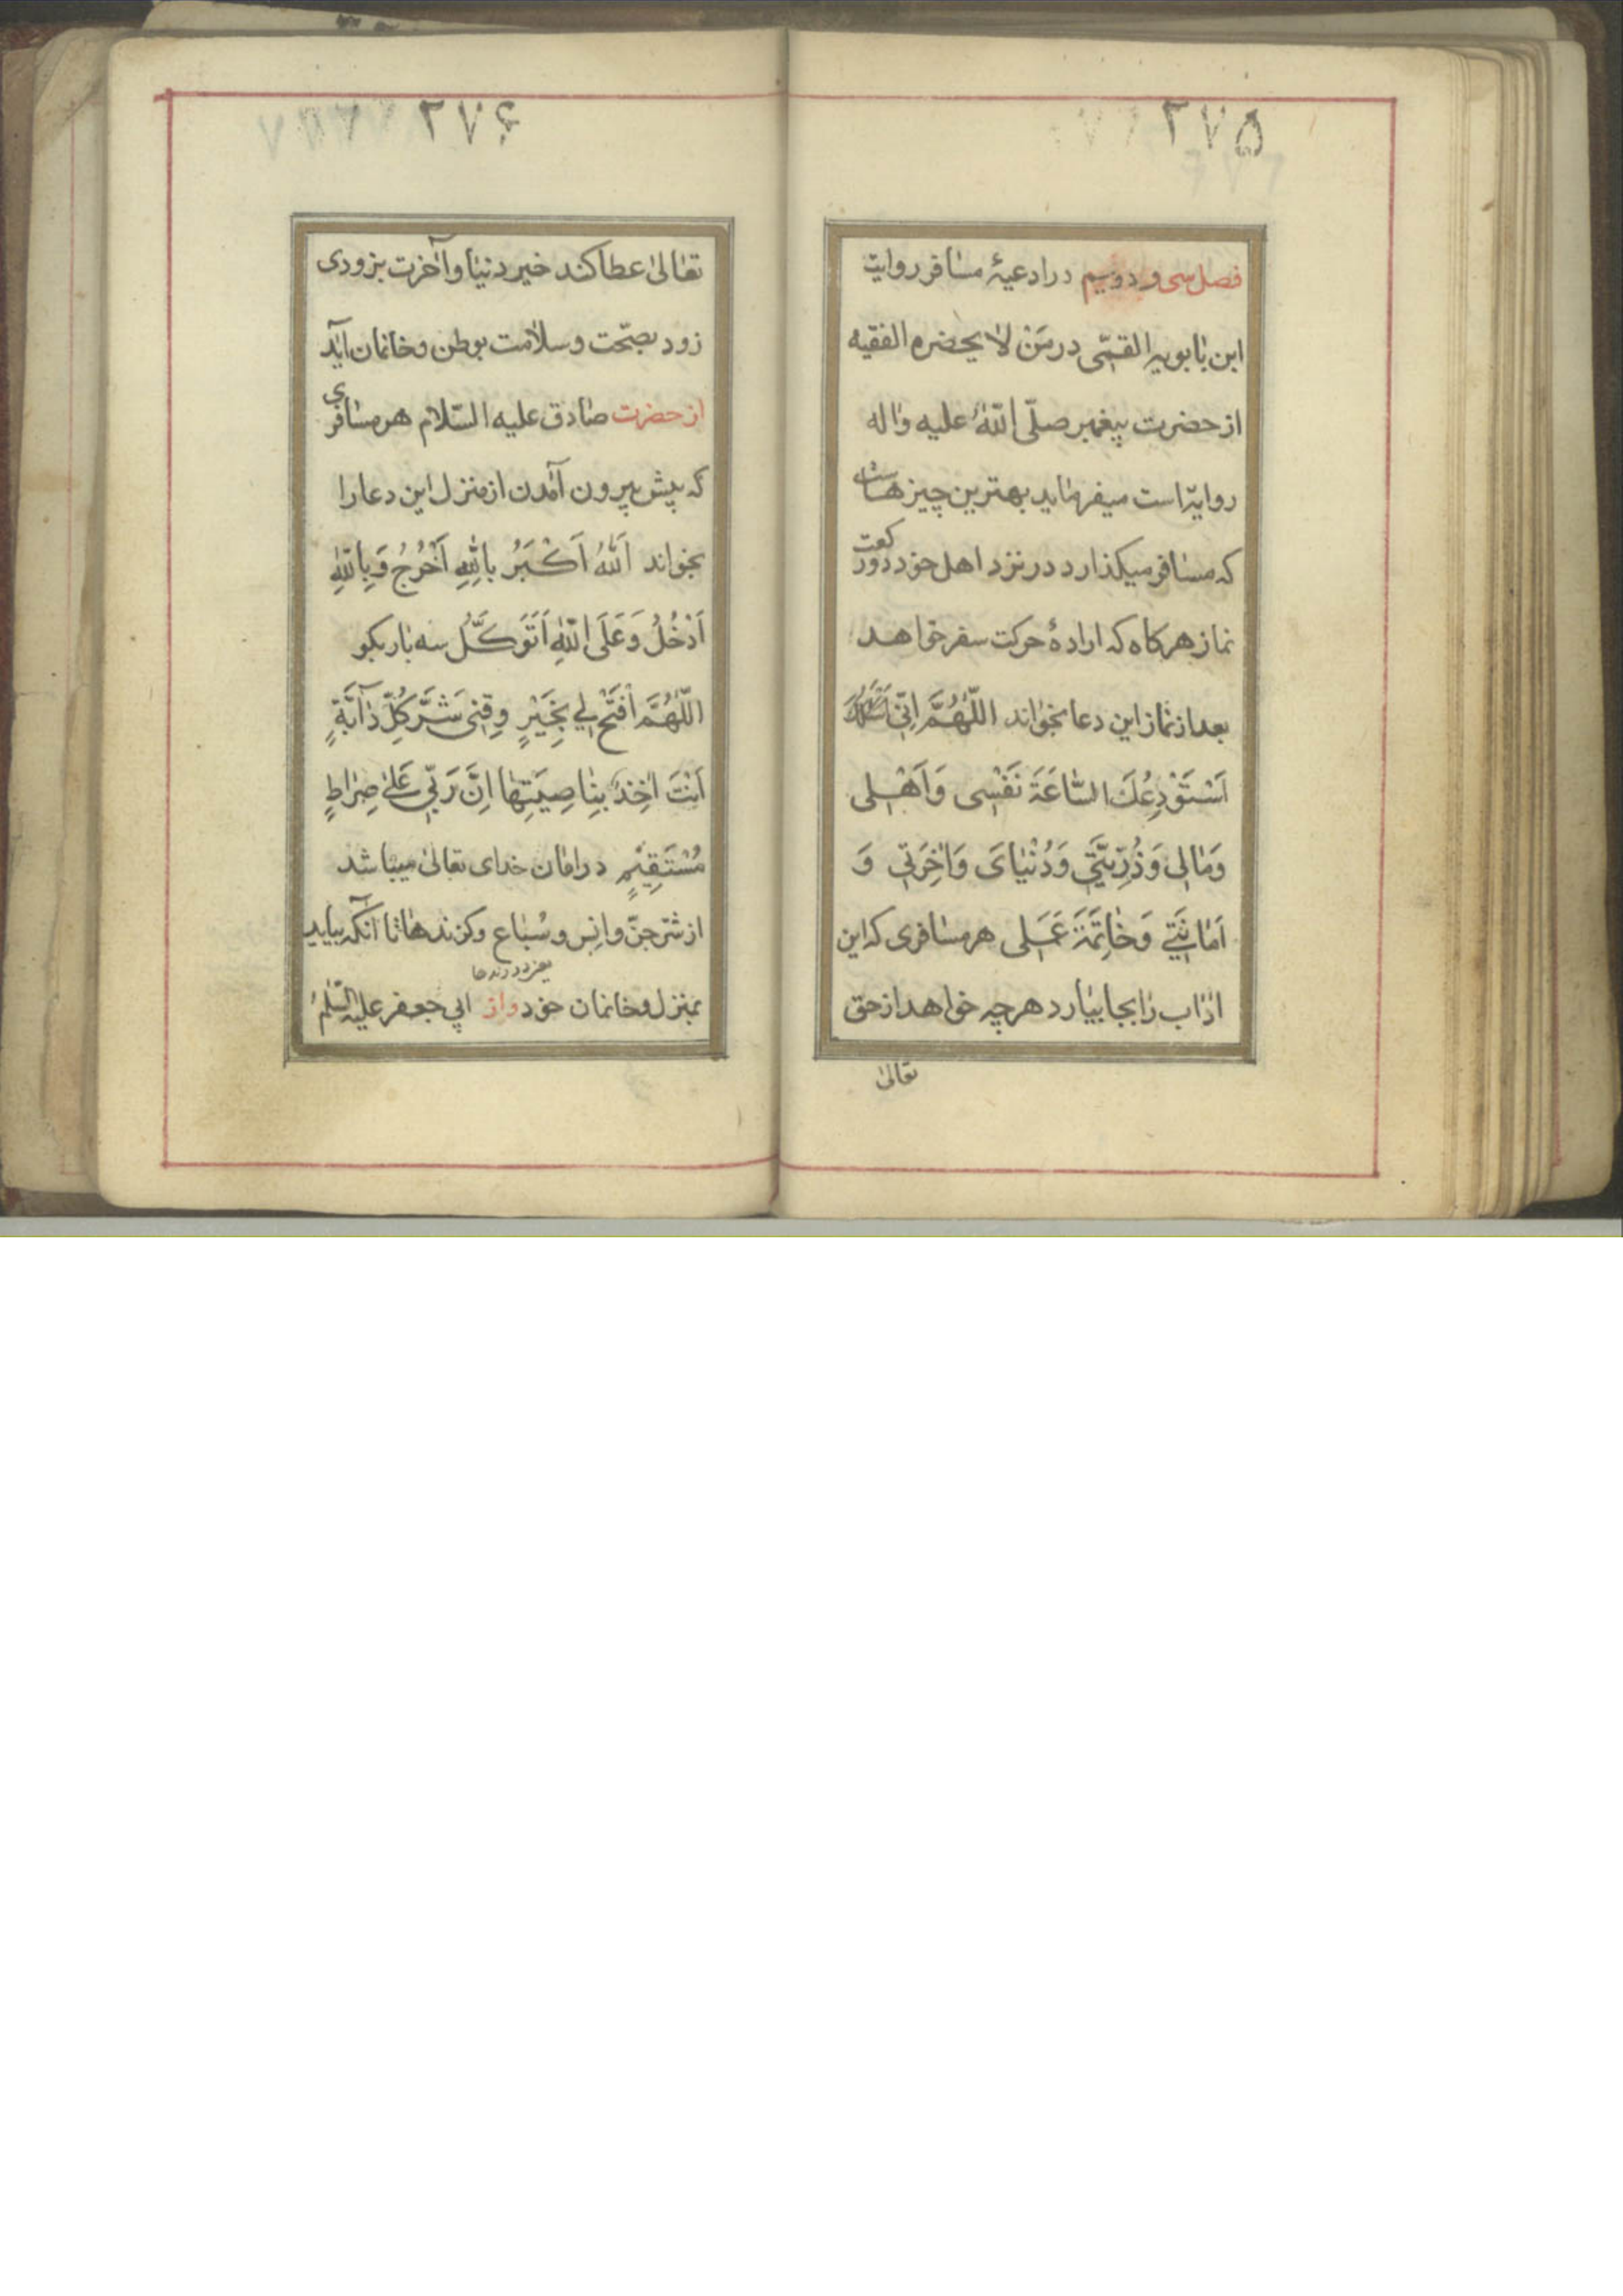 ۲۷۵
فصل سی و دویم در ادعیهٔ مسافر روایت
ابن بابویه القمّی در مَنْ لا یحضره الفقیه
از حضرت پیغمبر صلّی اللّهُ علیه واله
روایة است میفرماید بهترین چیزهاست
که مسافر میکذارد در نزد اهل خود دو رکعت
نماز هرکاه که ارادهٔ حرکت سفر خواهد
بعد از نماز این دعا بخواند اللّهُمَّ اِنّی
اَسْتَوْدِعُكَ السّاعَةَ نَفْسی وَاَهْلی
وَمٰالی وَذُرِّیَّتی وَدُنْیٰایَ وَاٰخِرَتی وَ
اَمٰانَتی وَخٰاتِمَةَ عَمَلی هر مسافری که این
اداب را بجا بیارد هر چه خواهد از حق
تعالیٰ
۲۷۶
تعالیٰ عطا کند خیر دنیا و آخرت بزودی
زود بصحّت وسلامت بوطن وخانمان آید
از حضرت صادق علیه السّلام هر مسافری
که پیش بیرون آمدن از منزل این دعا را
بخواند اَللّٰهُ اَکْبَرُ بِاللّٰهِ اَخْرُجُ وَبِاللّٰهِ
اَدْخُلُ وَعَلَی اللّٰهِ اَتَوَکَّلُ سه بار بکو
اللّهُمَّ افْتَحْ لی بِخَیْرٍ وقِنی شَرَّ کُلِّ دٰآبَّةٍ
اَنْتَ اٰخِذٌ بِنٰاصِیَتِهٰا اِنَّ رَبّی عَلیٰ صِرٰاطٍ
مُسْتَقِیْمٍ در امان خدای تعالیٰ میباشد
از شرّ جنّ وانس وسُباع وکزندها تا آنکه بیاید
یعنی درنده‌ها
بمنزل وخانمان خود واز ابی جعفر علیه السّلم